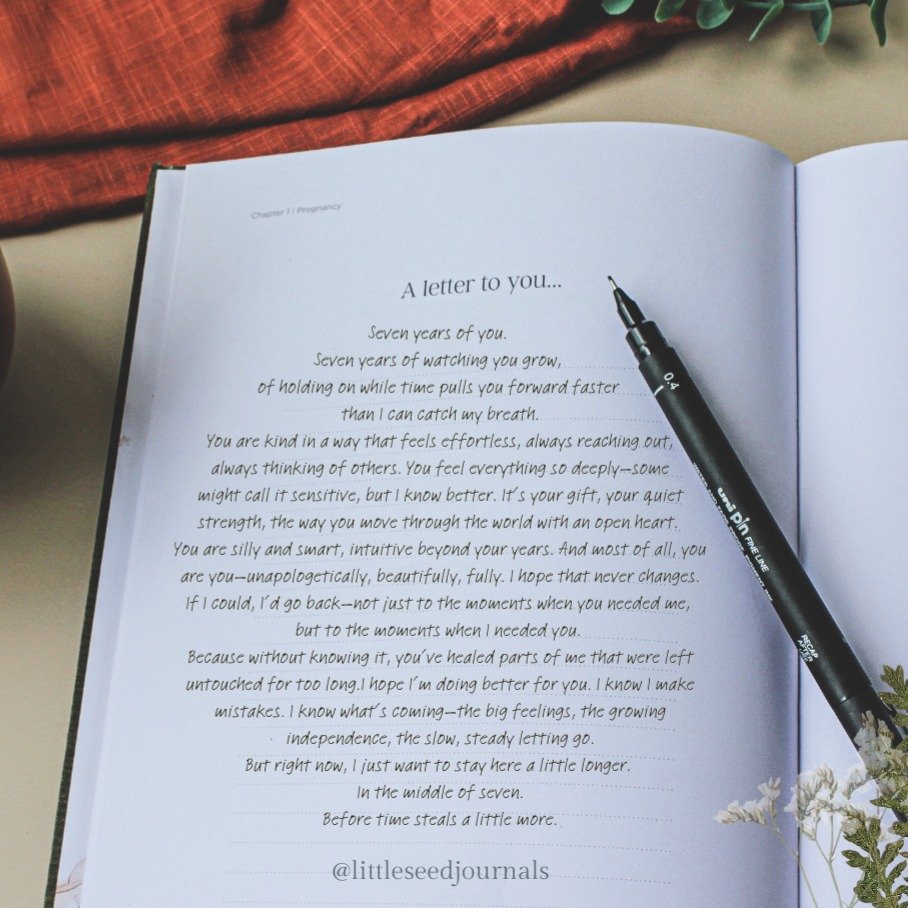 Chapter 1 | Pregnancy
A letter to you...
Seven years of you.
Seven years of watching you grow,
of holding on while time pulls you forward faster
than I can catch my breath.
You are kind in a way that feels effortless, always reaching out,
always thinking of others. You feel everything so deeply—some
might call it sensitive, but I know better. It's your gift, your quiet
strength, the way you move through the world with an open heart.
You are silly and smart, intuitive beyond your years. And most of all, you
are you—unapologetically, beautifully, fully. I hope that never changes.
If I could, I'd go back—not just to the moments when you needed me,
but to the moments when I needed you.
Because without knowing it, you've healed parts of me that were left
untouched for too long.I hope I'm doing better for you. I know I make
mistakes. I know what's coming—the big feelings, the growing
independence, the slow, steady letting go.
But right now, I just want to stay here a little longer.
In the middle of seven.
Before time steals a little more.
@littleseedjournals
0.4
uni pin FINE LINE
RECAP
AFTER